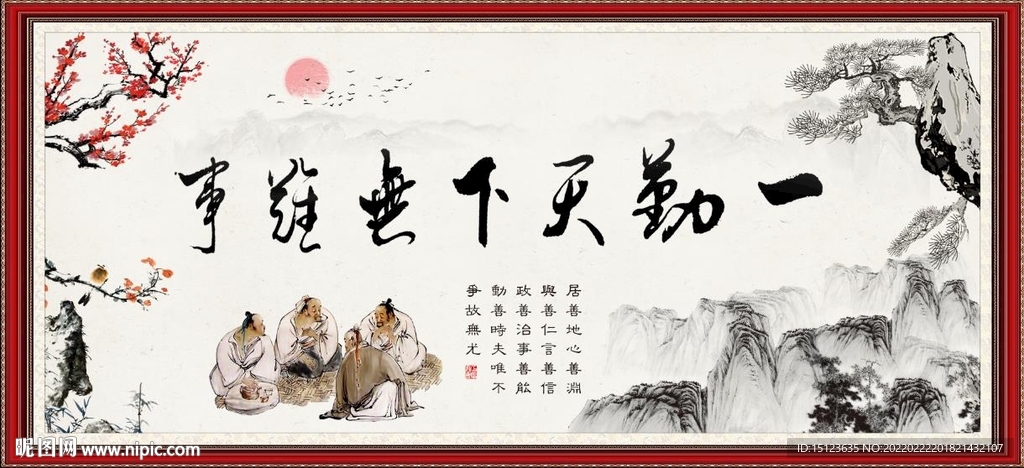 一勤天下無難事
居善地心善淵
與善仁言善信
政善治事善能
動善時夫唯不
爭故無尤
昵图网 www.nipic.com
ID:15123635 NO:20220222201821432107